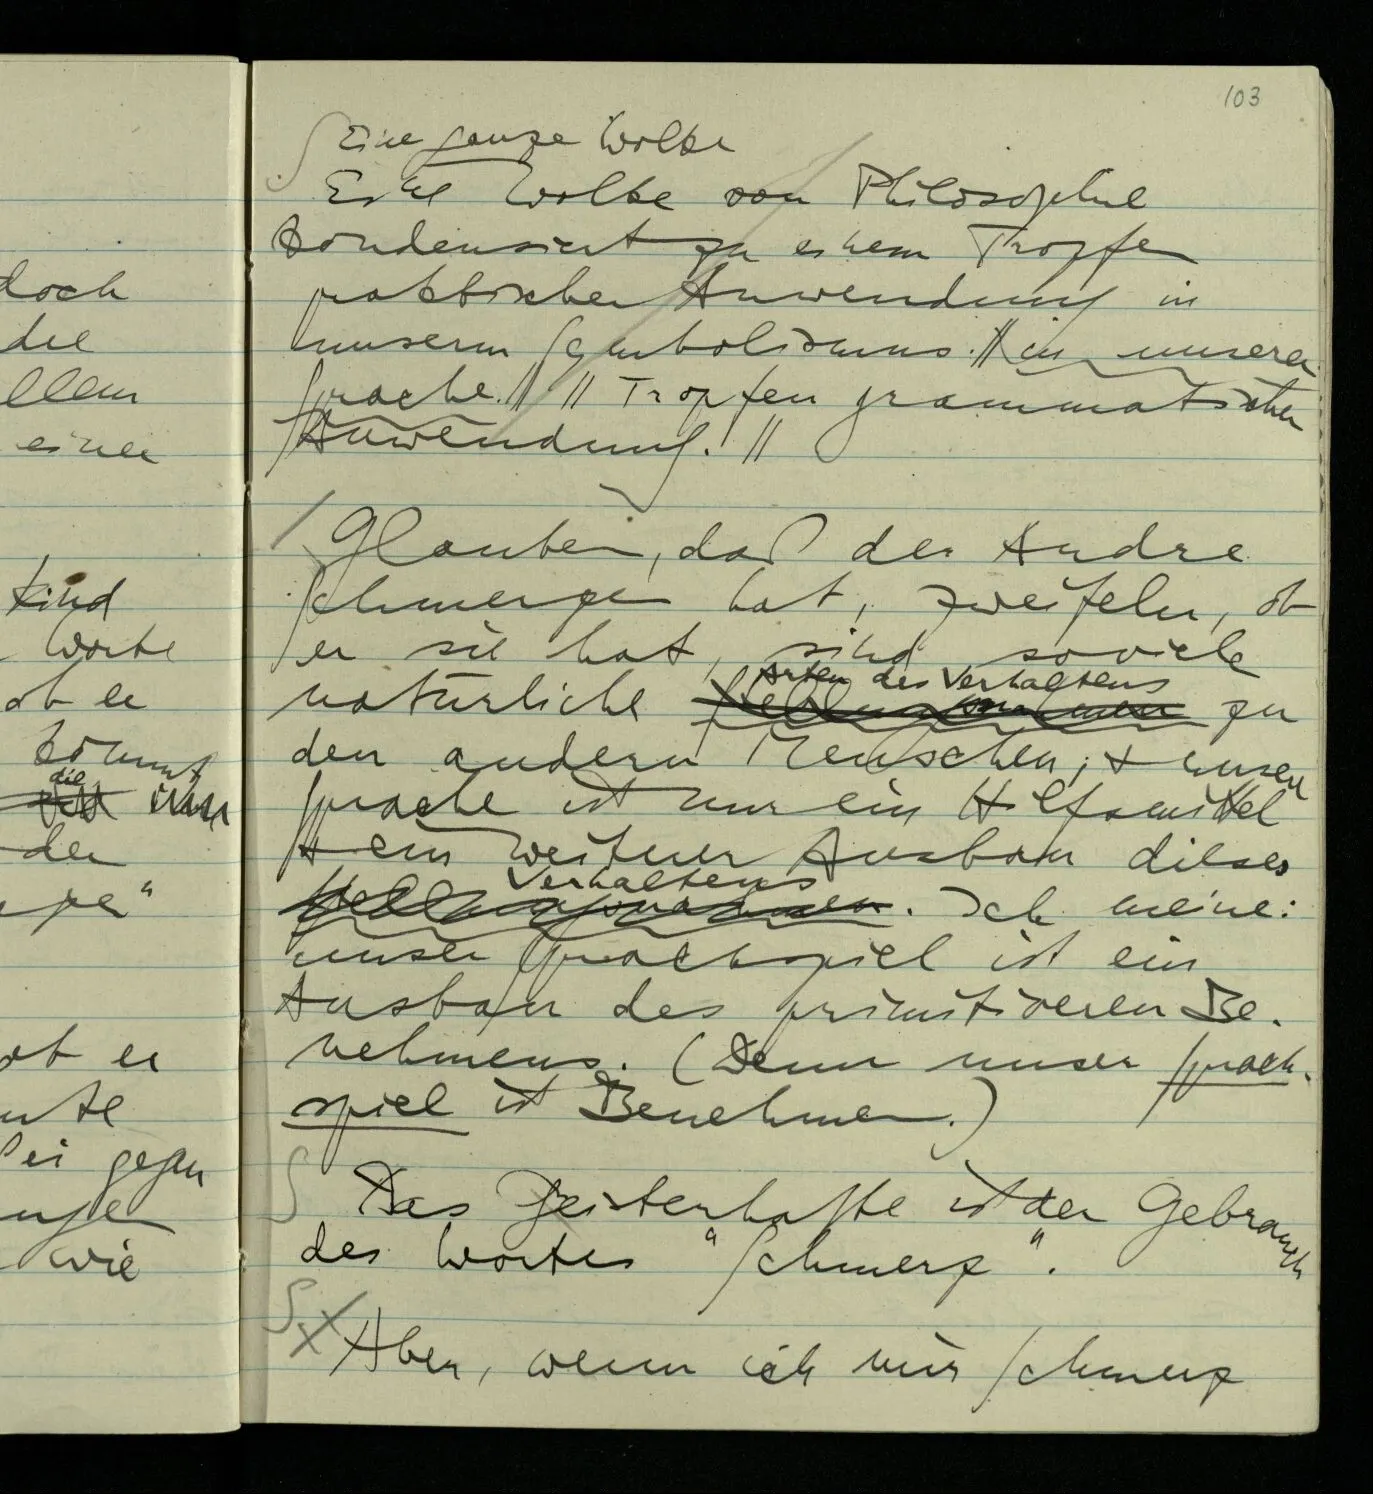 doch
die
einer
Kind
Worte
ob er
kommt
die
der
ob er
gegen
wie
103
Eine ganze Wolke
Eine Wolke von Philosophie
kondensiert zu einem Tropfen
praktischer Anwendung in
unserm Symbolismus. // in unserer
Sprache. // // Tropfen grammatischer
Anwendung. //
Glauben, daß der Andre
Schmerzen hat, zweifeln, ob
er sie hat, sind soviele
Arten des Verhaltens
natürliche Stellungnahmen zu
den andern Menschen; & unsere
Sprache ist nur ein Hilfsmittel
& ein weiterer Ausbau dieses
Verhaltens
Stellungnahmen. Ich meine:
unser Sprachspiel ist ein
Ausbau des primitiveren Be-
nehmens. (Denn unser Sprach-
spiel ist Benehmen.)
Das Geisterhafte ist der Gebrauch
des Wortes “Schmerz”.
Aber, wenn ich mir Schmerz